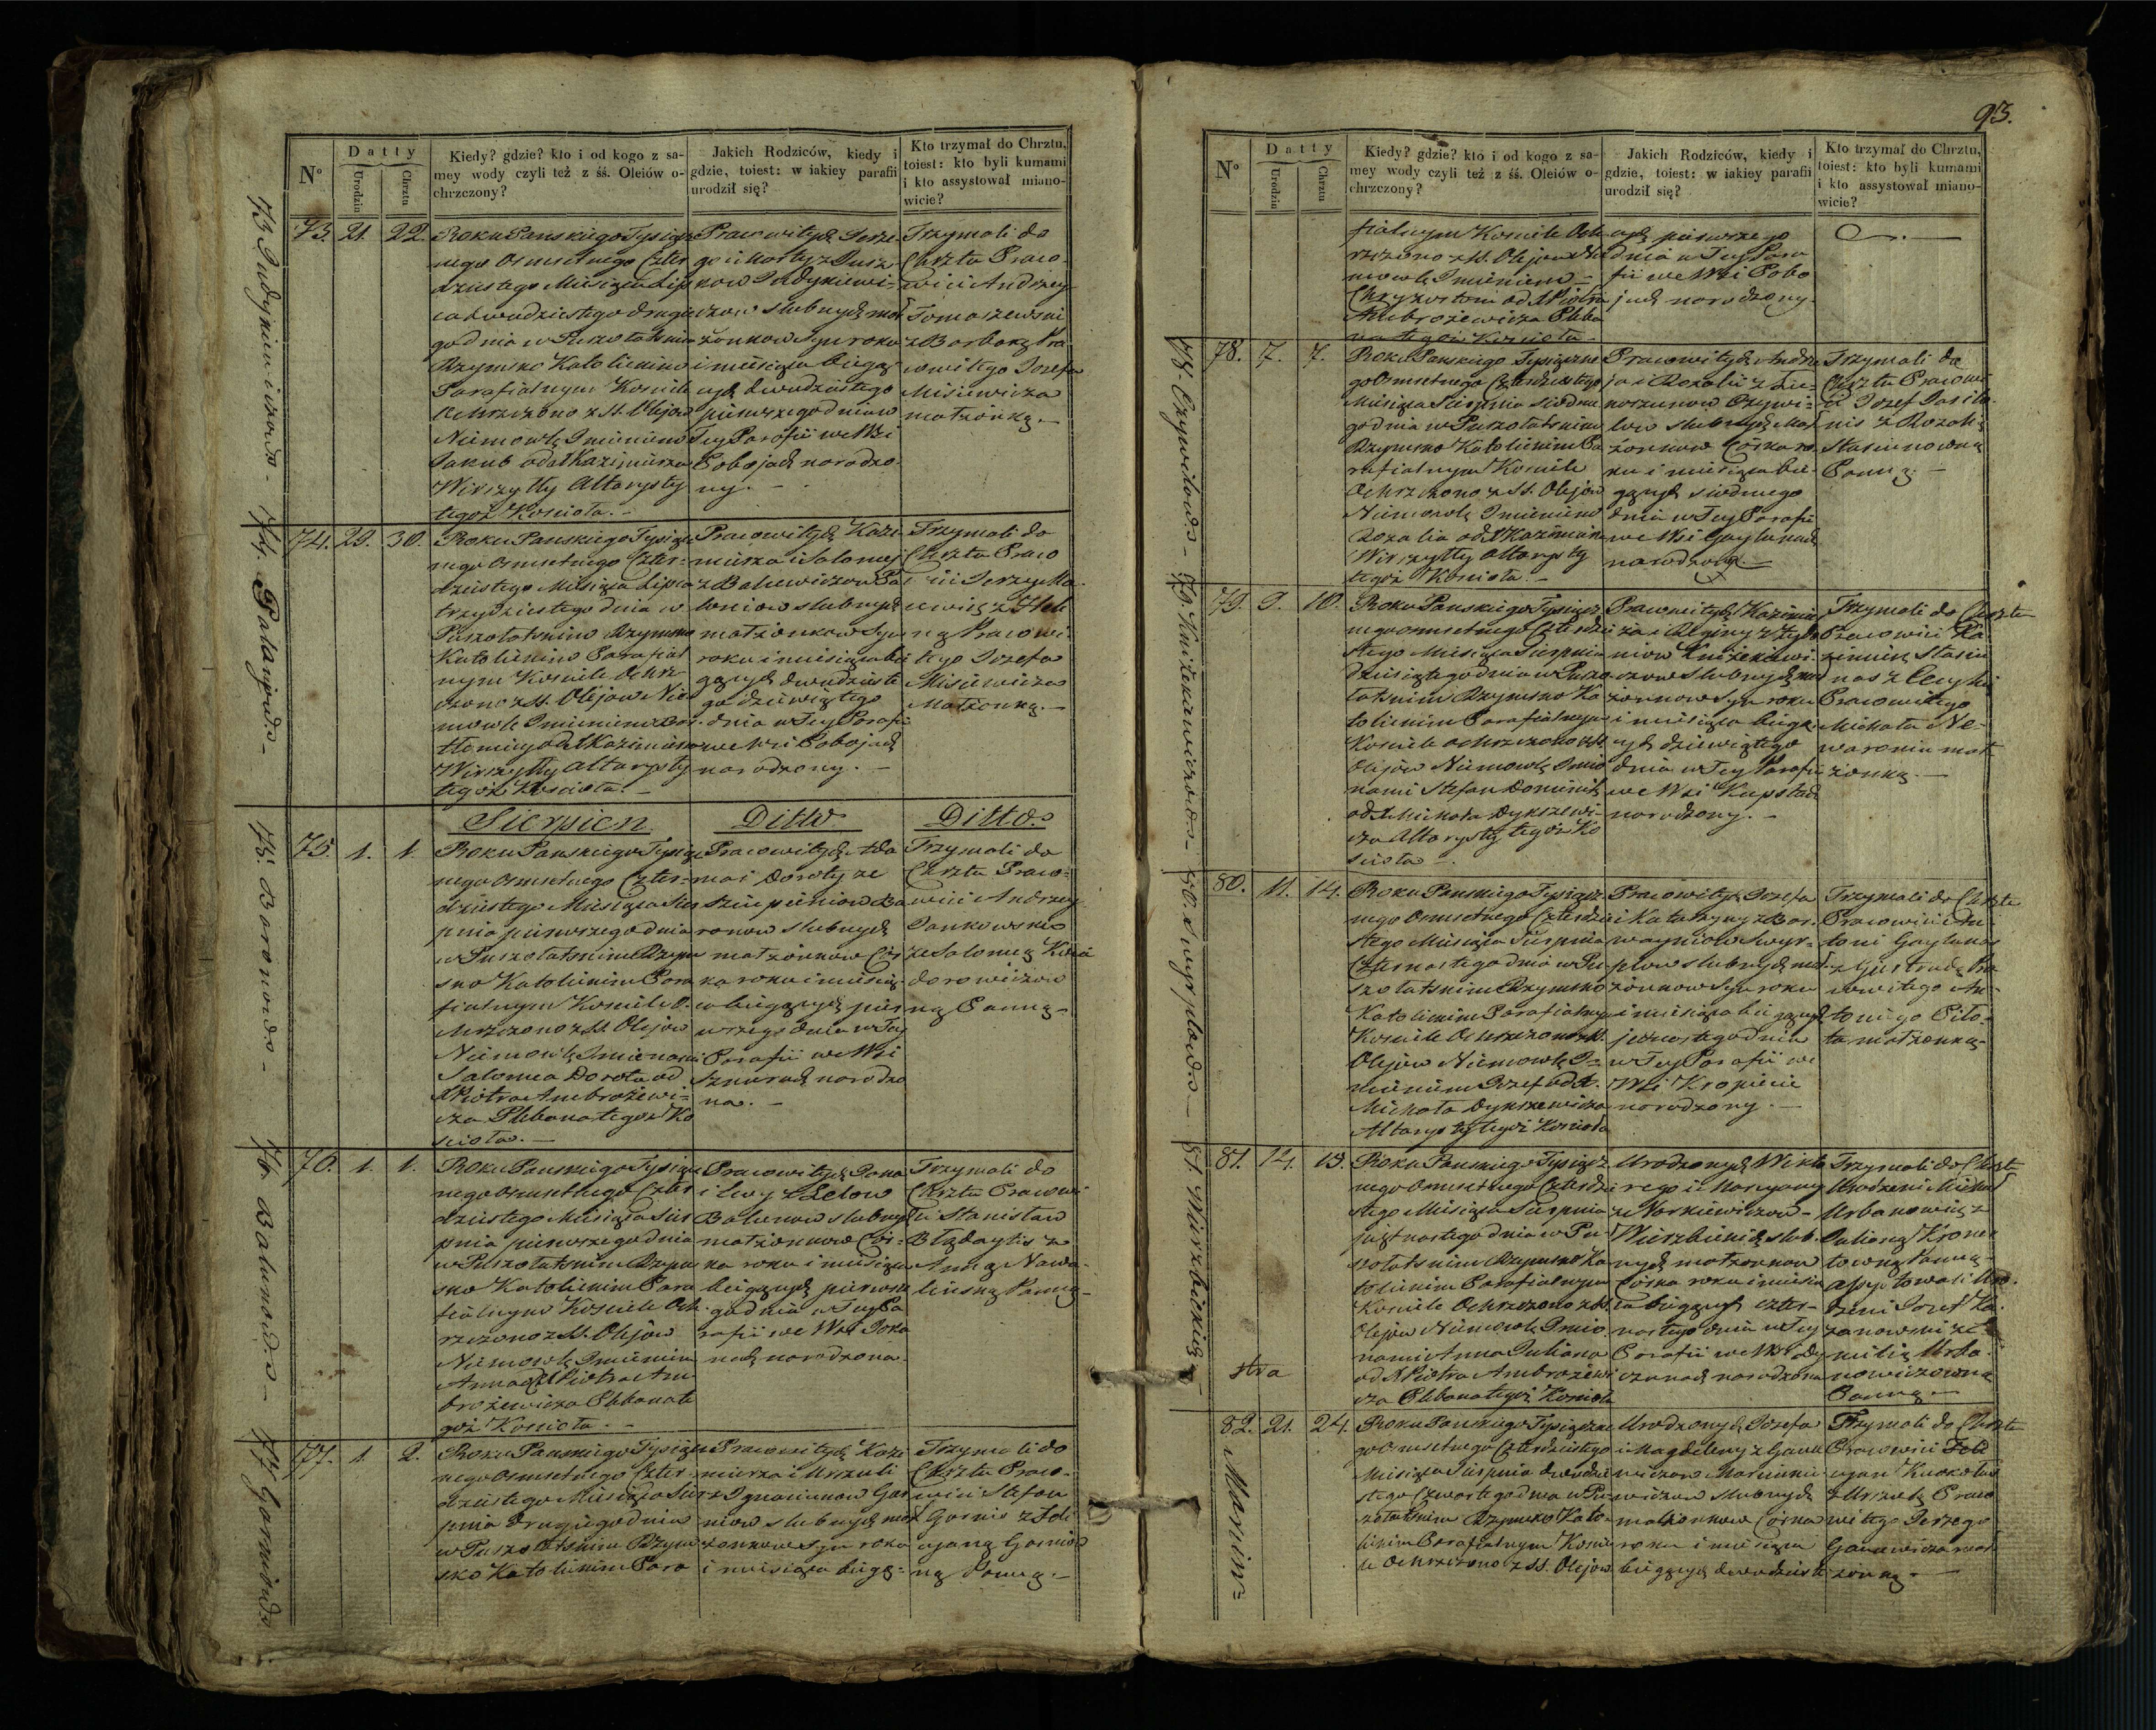 Nº
Datty
Urodzin
Chrztu
Kiedy? gdzie? kto i od kogo z sa-
mey wody czyli też z śś. Oleiów o-
chrzczony?
Jakich Rodziców, kiedy i
gdzie, toiest: w iakiey parafii
urodził się?
Kto trzymał do Chrztu,
toiest: kto byli kumami
i kto assystował miano-
wicie?
73. 21. 22.
Roku Panskiego Tysiącz
nego Osmsetnego Czter
dziestego Miesiąca Lip
ca dwudziestego drugie
go dnia w Puszołatskim
Rzymsko Katolickim
Parafialnym Kosciele
Ochrzczono z SS. Olejow
Niemowlę Imieniem
Jakub od X Kazimierza
Wirszyłły Altarysty
tegoż Koscioła.
Pracowitych Jerze-
go i Marty z Jusz-
kow Indykiewi-
czow slubnych mał
żonkow Syn roku
i miesiąca bieżą
cych dwudziestego
pierwszego dnia w
Tey Parafii we Wsi
Pobojach narodzo-
ny.
Trzymali do
Chrztu Praco-
wici Andrzey
Tomaszewski
z Barbarą Pra
cowitego Jozefa
Misiewicza
małżonką.
74. Pałanjowo
74. 29. 30.
Roku Panskiego Tysiącz
nego Osmsetnego Czter-
dziestego Miesiąca Lipca
trzydziestego dnia w
Puszołatskim Rzymsko
Katolickim Parafial
nym Kosciele Ochrz-
czono z SS. Olejow Nie
mowle Imieniem Bar-
tłomiey od X Kazimierza
Wirszyłły Altarysty
tegoż Kosciola.
Pracowitych Kazi
mierza i Salomei
z Balcewiczow Pa
łoniow slubnych
małżonkow Syn
roku i miesiąca bie
gących dwudzieste
go dziewiątego
dnia w Tey Parafii
we Wsi Pobojach
narodzony.
Trzymali do
Chrztu Praco
wici Jerzy Ma-
cewicz z Hele
ną Pracowi-
tego Jozefa
Misiewicza
Małżonką.
Sierpien Ditto Ditto
75. Baronowo
75. 1. 1.
Roku Panskiego Tysiącz
nego Osmsetnego Czter-
dziestego Miesiąca Sier
pnia pierwszego dnia
w Puszołatskim Rzym
sko Katolickim Para
fialnym Kosciele O-
chrzczono z SS. Olejow
Niemowlę Imionami
Salomea Dorota od
X Piotra Ambrożewi-
cza Plebana tegoż Ko
scioła.
Pracowitych Ada
ma i Doroty ze
Szlupieniow Ba
ronow slubnych
małżonkow Cór
ka roku i miesią
ca biegących pier
wszego dnia w Tey
Parafii we Wsi
Sznurach narodzo
na.
Trzymali do
Chrztu Praco-
wici Andrzey
Jankowski
ze Salomeą
dorowiczow
ną Panną
76. Balunowo
76. 1. 1.
Roku Panskiego Tysiącz
nego Osmsetnego Czter
dziestego Miesiąca Sier
pnia pierwszego dnia
w Puszołatskim Rzym
sko Katolickim Para
fialnym Kosciele Och-
rzczono z SS. Olejow
Niemowle Imieniem
Anna od X Piotra Am
brożewicza Plebana te
goż Kosciola.
Pracowitych Jona
i Ewy z Lelow
Balunow slubnych
małżonkow Cór-
ka roku i miesiąca
biegących pierwsze
go dnia w Tey Pa
rafii we Wsi Joka
nach narodzona.
Trzymali do
Chrztu Pracowi
ci Stanisław
Błądaytis z
Anną Nawa-
linską Panną
77. 1. 2.
Roku Panskiego Tysiącz
nego Osmsetnego Czter
dziestego Miesiąca Sier
pnia drugiego dnia
w Puszołatskim Rzym
sko Katolickim Para
Pracowitych Kazi
mierza i Urszuli
z Ignaciunow Gar
niow slubnych mał
żonkow Syn roku
i miesiąca biegą-
Trzymali do
Chrztu Praco-
wici Stefan
Garnis z Feli
cyaną Garnio
ną Panną.
93.
Nº
Datty
Urodzin
Chrztu
Kiedy? gdzie? kto i od kogo z sa-
mey wody czyli też z śś. Oleiów o-
chrzczony?
Jakich Rodziców, kiedy i
gdzie, toiest: w iakiey parafii
urodził się?
Kto trzymał do Chrztu,
toiest: kto byli kumami
i kto assystował miano-
wicie?
fialnym Kosciele Och
rzczono z SS. Olejow Nie
mowlę Imieniem
Chryzostom od X Piotra
Ambrożewicza Pleba
na tegoż Kosciola
cych pierwszego
dnia w Tey Para
fii we Wsi Pobo
jach narodzony.
78. 7. 7.
Roku Panskiego Tysiączne
go Osmsetnego Czterdziestego
Miesiąca Sierpnia siodme
go dnia w Puszołatskim
Rzymsko Katolickim Pa
rafialnym Kosciele
Ochrzczono z SS. Olejow
Niemowle Imieniem
Rozalia od X Kazimierza
Wirszyłły Altarysty
tegoż Kosciola.
Pracowitych Andrze
ja i Rozalii z
Czywi-
low slubnych Mał
żonkow Córka ro
ku i miesiąca bie
gących siodmego
dnia w Tey Parafii
we Wsi Gaylunach
narodzona.
Trzymali do
Chrztu Pracowi
ci Jozef Jasilo-
nis z Rozalią
Stasiunowną
Panną.
79. 9. 10.
Roku Panskiego Tysiącz
nego osmsetnego Czterdzie
stego Miesiąca Sierpnia
dziesiątego dnia w Puszo
łatskim Rzymsko Ka
tolickim Parafialnym
Kosciele ochrzczono z SS.
Olejow Niemowlę Imio
nami Stefan Dominik
od X Michała Dyrszewi-
cza Altarysty tegoż Ko
scioła.
Pracowitych Kazimie
rza i Reginy z
niow Knizekiewi-
czow slubnych mał
żonkow Syn roku
i miesiąca biegą-
cych dziewiątego
dnia w Tey Parafii
we Wsi Kupstach
narodzony.
Trzymali do Chrztu
Pracowici Ka
zimierz Stasiu
nas z
Pracowitego
Michała Ne-
waronia mał
żonką.
80. Swyrplowo
80. 11. 14.
Roku Panskiego Tysiącz
nego Osmsetnego Czterdzie
stego Miesiąca Sierpnia
Czternastego dnia w Pu-
szołatskim Rzymsko
Katolickim Parafialnym
Kosciele Ochrzczono z SS.
Olejow Niemowlę I-
mieniem Jozef od X.
Michała Dyrszewicza
Altarysty tegoż Kosciola
Pracowitych Jozefa
i Katarzyny z Bar-
wayniow Swyr-
plow slubnych mał-
żonkow Syn roku
i miesiąca biegących
jedenastego dnia
w Tey Parafii we
Wsi Kropiście
narodzony.
Trzymali do Chrztu
Pracowici An
toni Gaylunas
z Giertrudą Pra
cowitego An-
toniego Piło-
ta małżonką
81. 14. 15.
Roku Panskiego Tysiącz
nego Osmsetnego Czterdzie
stego Miesiąca Sierpnia
piętnastego dnia w Pu-
szołatskim Rzymsko Ka
tolickim Parafialnym
Kosciele Ochrzczono z SS.
Olejow Niemowle Imio-
nami Anna Juliana
od X Piotra Ambrożewi
cza Plebana tegoż Kosciola
stra
Urodzonych Wikto
rego i Maryanny
z Norkiewiczow
Wierzbickich slub-
nych małżonkow
Córka roku i miesią
ca biegących czter-
nastego dnia w Tey
Parafii we Wsi
narodzona
Trzymali do Chrztu
Urodzeni Michał
Urbanowicz z
Julianą
towną Panną
assystowali Uro-
dzeni Jozef
zanowski z E-
milią Urba-
nowiczowną
Panną
82. 21. 24.
Roku Panskiego Tysiączne
go Osmsetnego Czterdziestego
Miesiąca Sierpnia dwudzie
stego Czwartego dnia w Pu-
szołatskim Rzymsko Kato-
lickim Parafialnym Koscie
le Ochrzczono z SS. Olejow
Urodzonych Jozefa
i Magdaleny z Gawe
wiczow Marcinkie
wiczow slubnych
małżonkow Córka
roku i miesiąca
biegących dwudzieste
Trzymali do Chrztu
Pracowici Feli
cyan
z Urszulą Praco
witego Jerzego
Ganuewicza mał-
żonką.
Marcin=